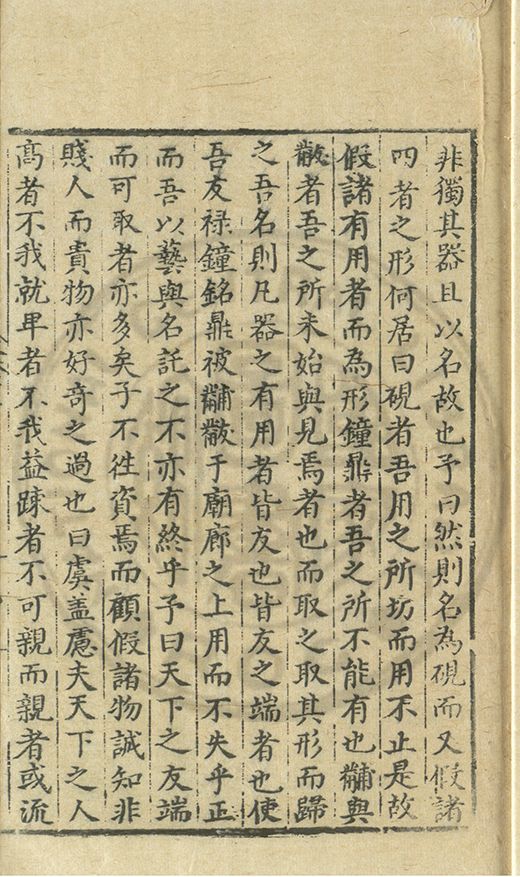 非獨其器且以名故也予曰然則名為硯而又假諸
四者之形何居曰硯者吾用之所坊而用不止是故
假諸有用者而為形鐘鼎者吾之所不能有也黼與
黻者吾之所未始與見焉者也而取之取其形而歸
之吾名則凡器之有用者皆友也皆友之端者也使
吾友祿鐘銘鼎被黼黻于廟廊之上用而不失乎正
而吾以藝與名託之不亦有終乎予曰天下之友端
而可取者亦多矣子不徃資焉而顧假諸物誠知非
賤人而貴物亦好奇之過也曰虞盖慮夫天下之人
髙者不我就卑者不我益踈者不可親而親者或流